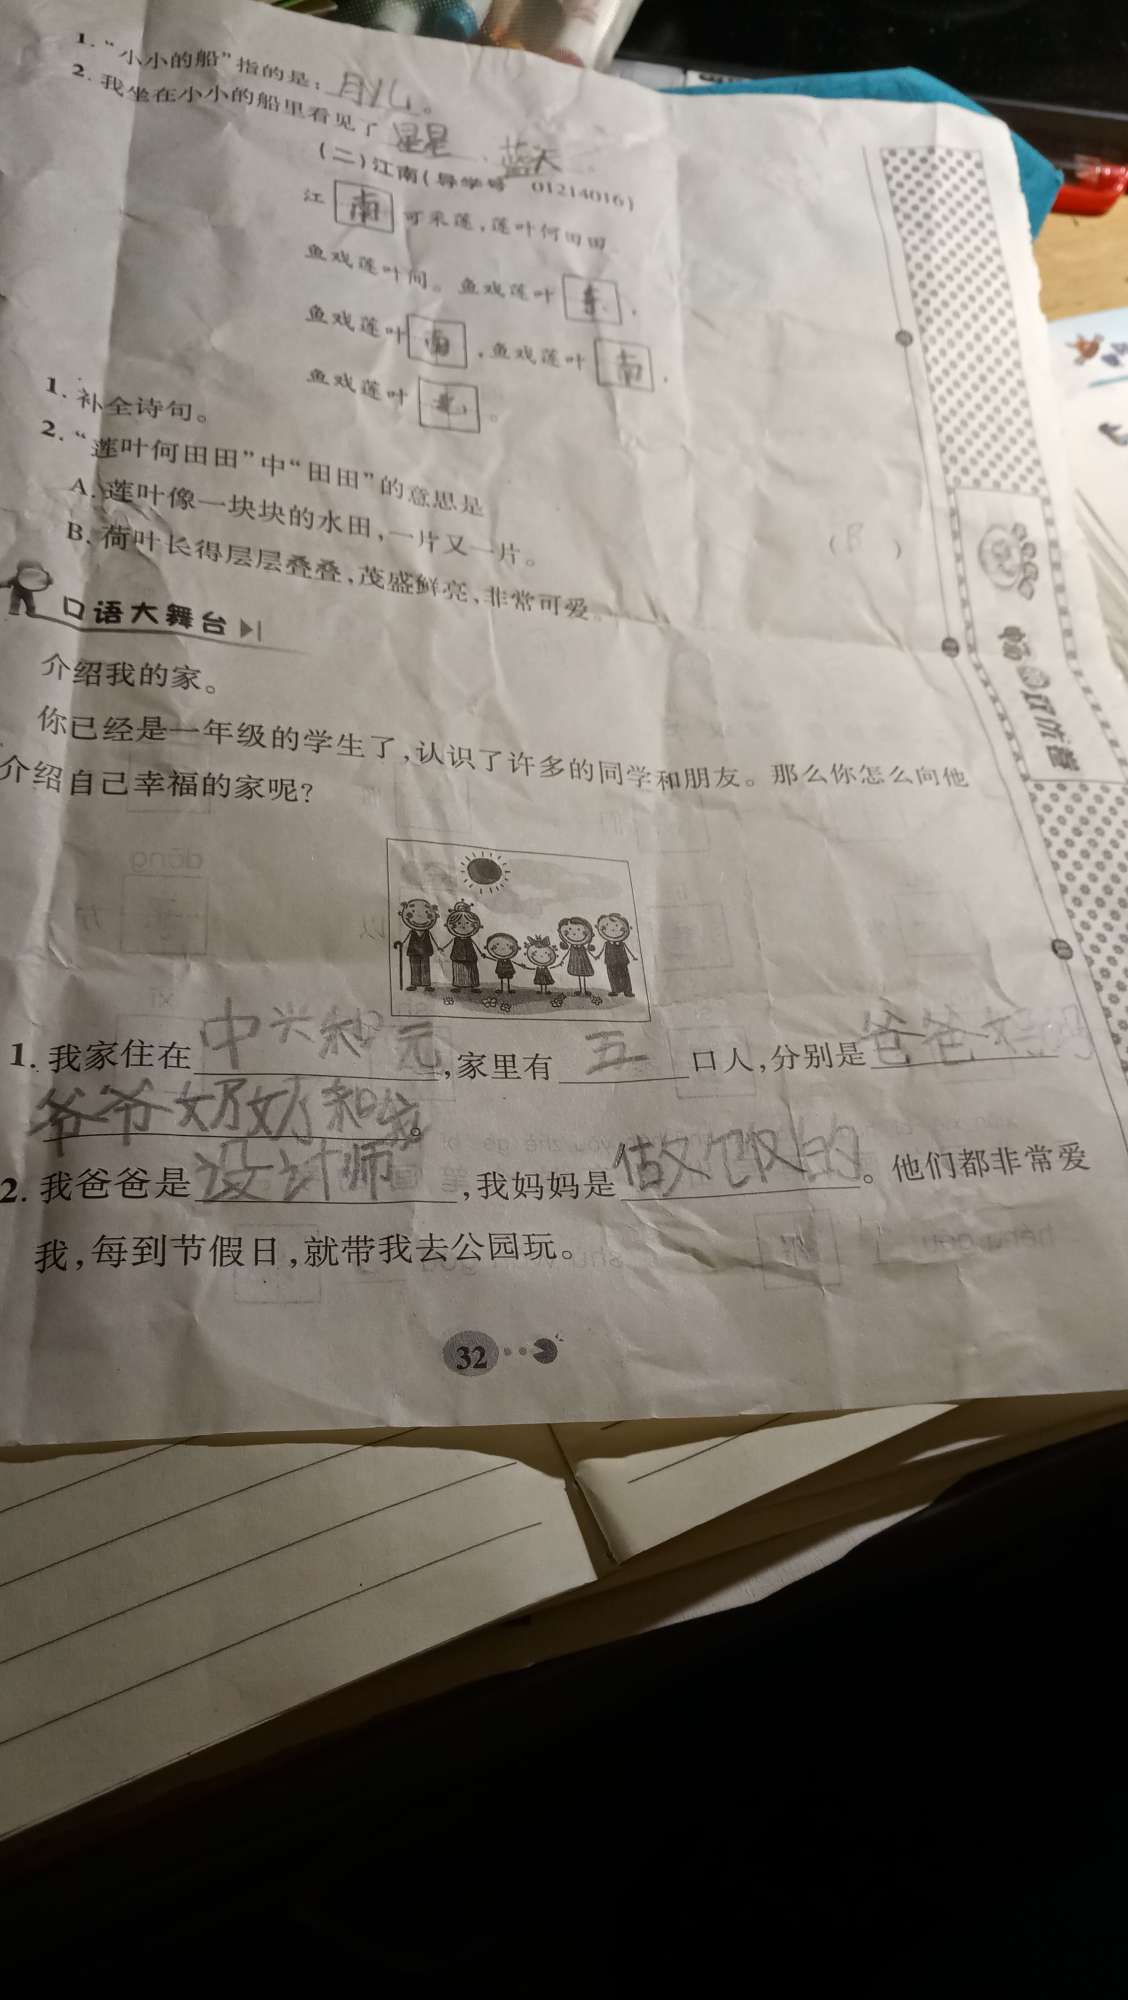 1. “小小的船”指的是：月儿。
2. 我坐在小小的船里看见了 星星、蓝天。
(二)江南(导学号 01214016)
江南可采莲，莲叶何田田。
鱼戏莲叶间。鱼戏莲叶东，
鱼戏莲叶，鱼戏莲叶南，
鱼戏莲叶北。
1. 补全诗句。
2. “莲叶何田田”中“田田”的意思是 (B)
A. 莲叶像一块块的水田，一片又一片。
B. 荷叶长得层层叠叠，茂盛鲜亮，非常可爱。
口语大舞台
介绍我的家。
你已经是一年级的学生了，认识了许多的同学和朋友。那么你怎么向他
介绍自己幸福的家呢？
1. 我家住在中兴和元，家里有五口人，分别是爸爸和妈
爷爷奶奶和我。
2. 我爸爸是设计师，我妈妈是做饭的。他们都非常爱
我，每到节假日，就带我去公园玩。
32